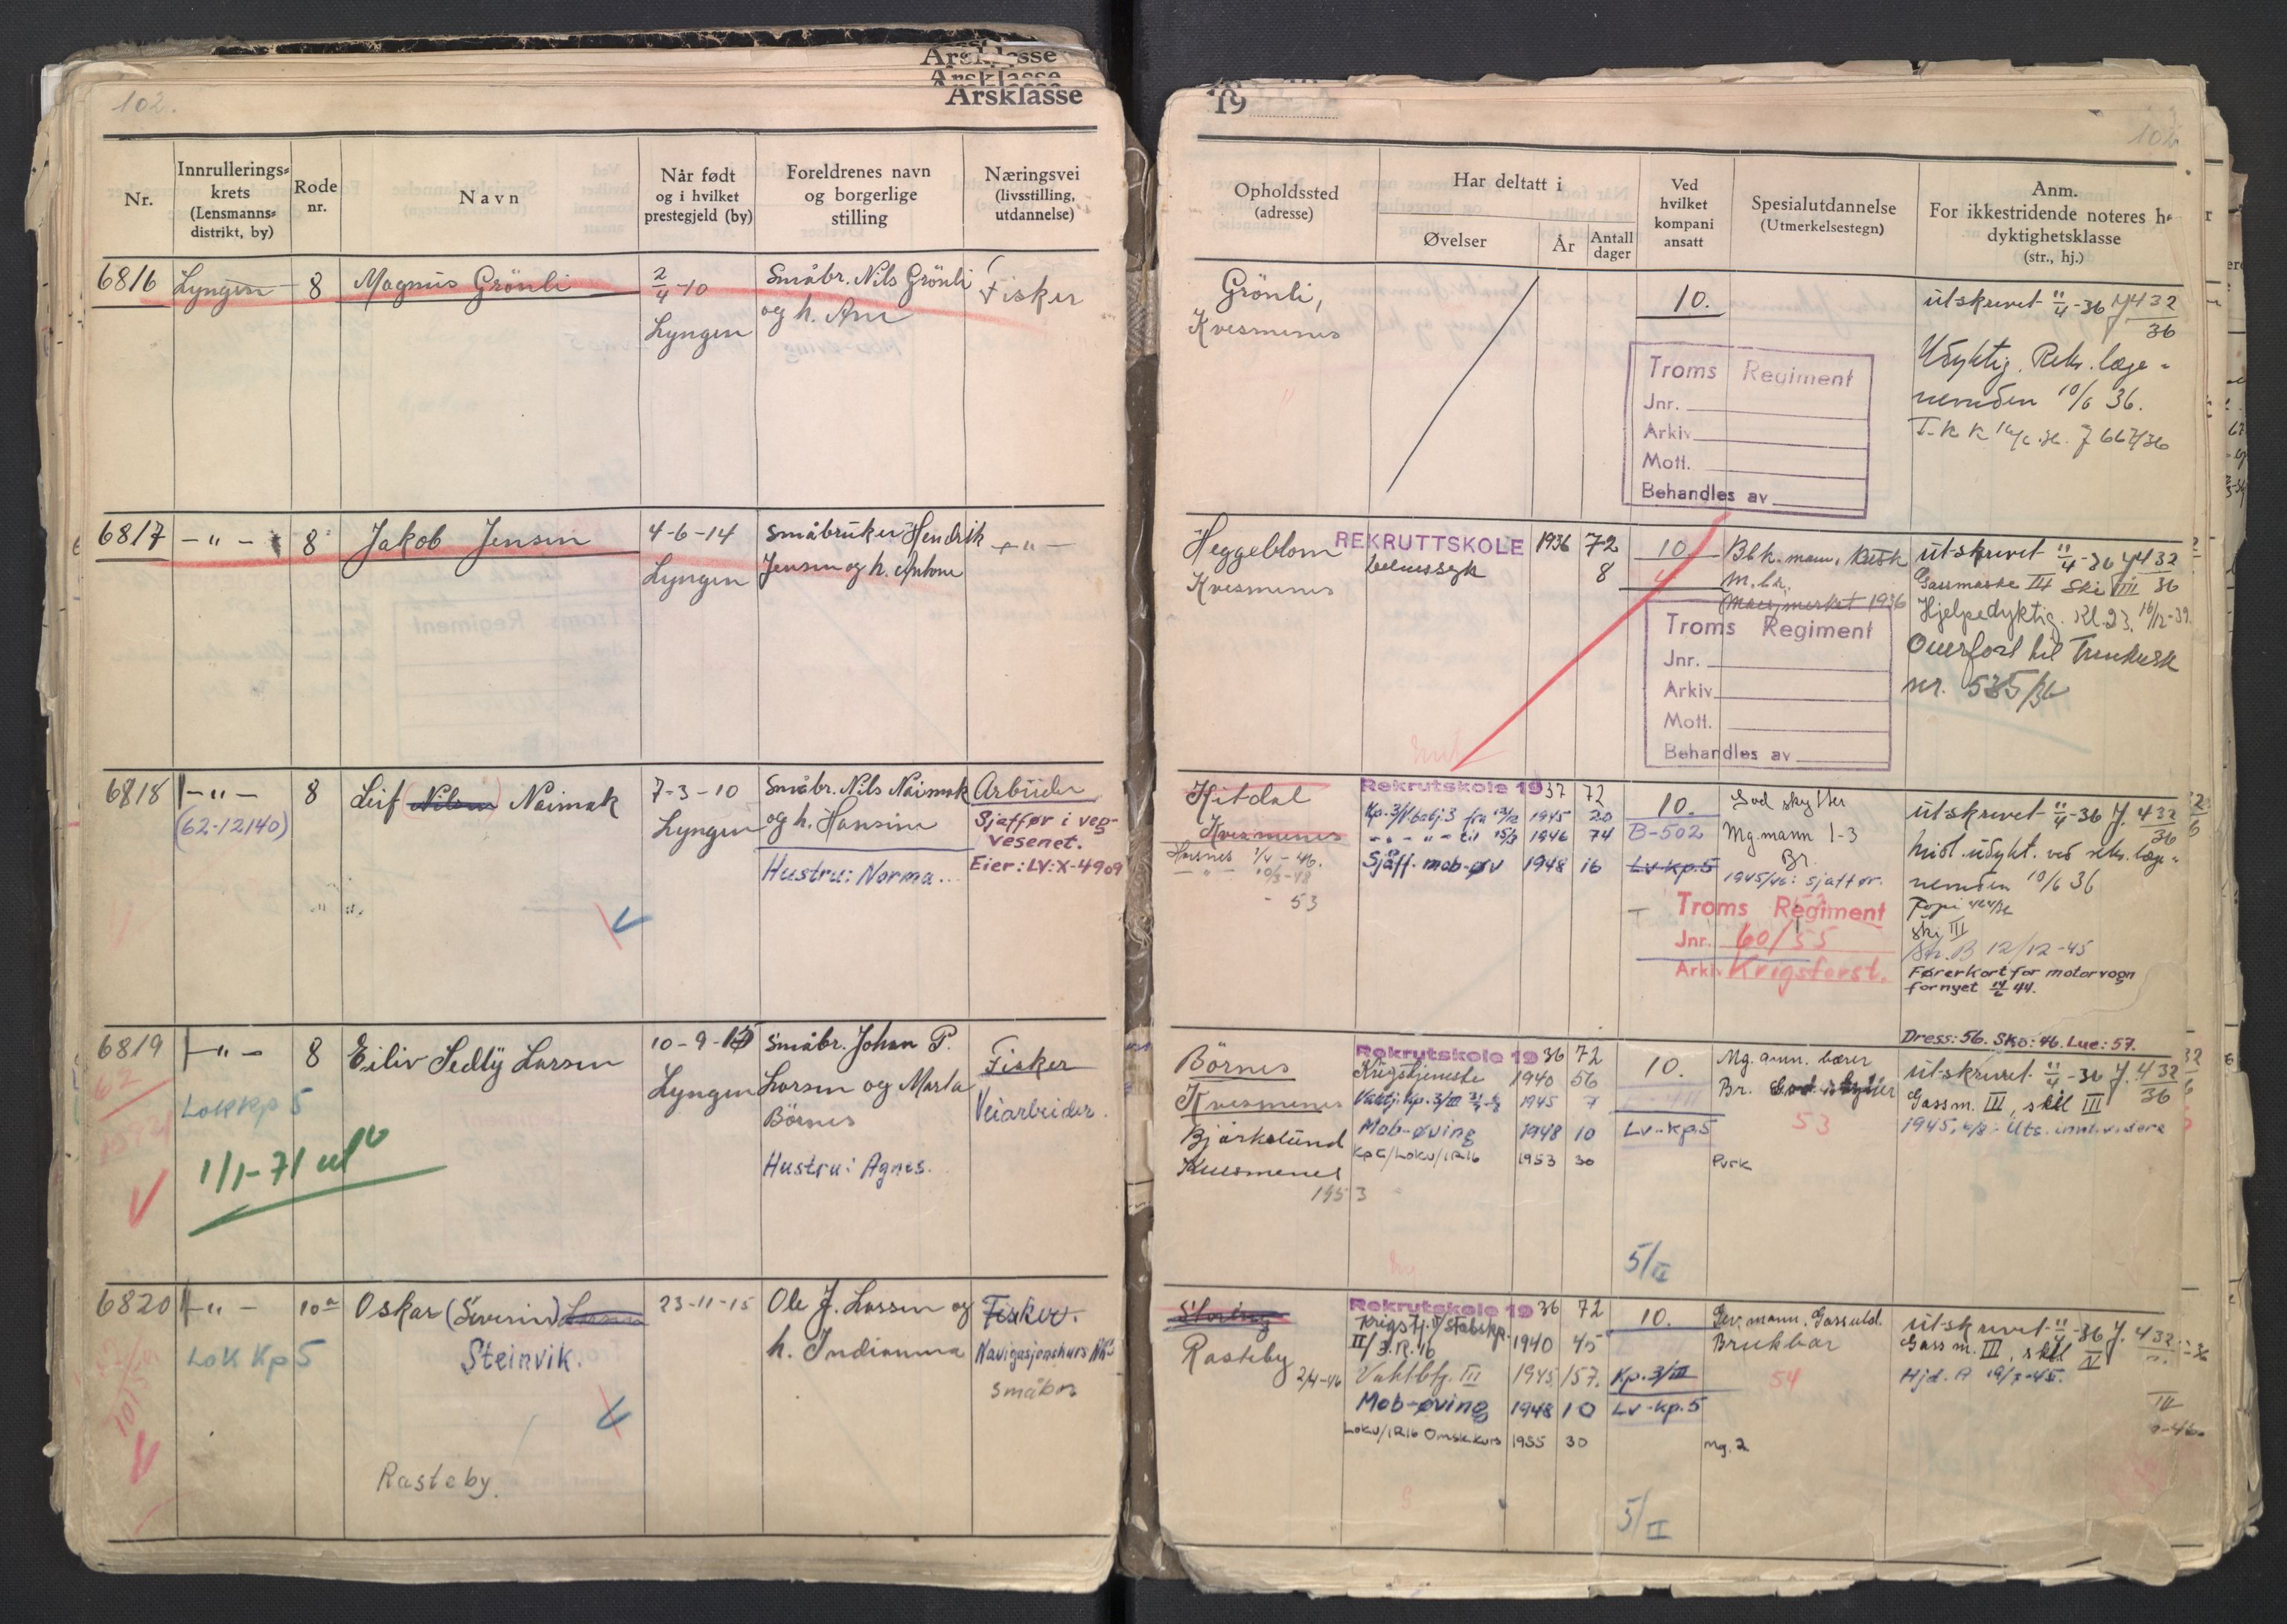 Årsklasse
Årsklasse
Årsklasse
102.
Nr.
Innrullerings-
krets
(Lensmanns-
distrikt, by)
Rode
nr.
Navn
Når født
og i hvilket
prestegjeld (by)
Foreldrenes navn
og borgerlige
stilling
Næringsvei
(livsstilling,
utdannelse)
6816 Lyngen 8 Magnus Grönli
2/4-10
Lyngen
Småbr. Nils Grönli
og h. Ane
Fisker
6817 - " - 8 Jakob Jensen
4-6-14
Lyngen
Småbruker Hendrik
Jensen og h. Antone
- " -
6818 - " - 8 Leif Nilsen Naimak
(62-12140)
7-3-10
Lyngen
Småbr. Nils Naimak
og h. Hansine
Hustru: Norma..
Arbeider
Sjaffør i veg-
vesenet.
Eier: LV: X-4909
6819 - " - 8 Eiliv Sedly Larsen
62
Lokkp 5
1/1-71
10-9-15
Lyngen
Småbr. Johan P.
Larsen og Marta
Börnes
Hustru: Agnes.
Fisker
Veiarbeider.
6820 - " - 10a Oskar (Severin) Larsen
Steinvik.
Lok Kp 5
Rasteby.
23-11-15
Ole J. Larsen og
h. Indianna
Fisker.
Navigasjonskurs
småbr
19
102
Opholdssted
(adresse)
Har deltatt i
Øvelser
År
Antall
dager
Ved
hvilket
kompani
ansatt
Spesialutdannelse
(Utmerkelsestegn)
Anm.
For ikkestridende noteres he
dyktighetsklasse
(str., hj.)
Grönli,
Kvesmenes
10.
Troms Regiment
Jnr.
Arkiv
Mott.
Behandles av
utskrevet 11/4-36 J 432/36
Udyktig. Rek. læge-
nemden 10/6 36.
Heggeblom
Kvesmenes
REKRUTTSKOLE 1936 72
8
10
4
Blk. mann, Brukb
m. lk.
1936
Troms Regiment
Jnr.
Arkiv
Mott.
Behandles av
utskrevet 11/4-36 J 432/36
Gassmaske III Ski III
Hjelpedyktig. Kl. 23. 16/12-39.
Overfört til
nr. 535/36
Kitdal
Kvesmenes
Hasnes 1/4-46.
- " - 10/3-48
- 53
Rekrutskole 1937 72
1945 20
1946 74
Sjåff. mob-øv 1948 16
10.
B-502
Lv-kp.5
God skytter
Mg. mann 1-3
Br.
1945/46: sjaffør.
Troms Regiment
Jnr. 60/55
Arkiv Krigsforst.
utskrevet 11/4-36 J. 432/36
Midl. udykt. ved rek. læge-
nemden 10/6 36
Ski III
Str. B 12/12-45
Førerkort for motorvogn
fornyet 14/6 44.
Dress: 56. Sko: 46. Lue: 57.
Börnes
Kvesmenes
Bjørkelund
Kvesmenes
1953
Rekrutskole 1936 72
Krigstjeneste 1940 56
1945 7
Mob-øving 1948 10
1953 30
10.
Lv-kp5
5/II
Mg. amm. bærer
Br. God skytter
53
Pvrk
utskrevet 11/4-36 J. 432/36
Gassm. III, skll III
Storeng
Rasteby
2/4-46
Rekrutskole 1936 72
Krigstj. Stabskp.
II/I.R. 16 1940 45
Vaktbtj. III 1945 157.
Mob-øving 1948 10
Lokv/IR16 Omsk.kurs 1955 30
10.
Kp. 3/III
Lv-kp.5
5/II
Gev. mann. Gassuld.
Brukbar
54
Mg. 2
utskrevet 11/4-36 J. 432
Gassm. III, skll IV
Hjd. A 19/7-45.